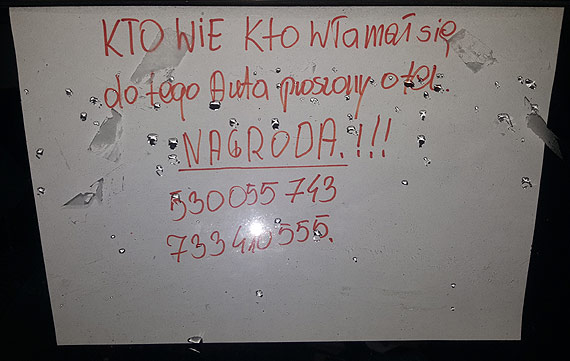 KTO WIE KTO WŁAMAŁ się
do tego Auta proszony o tel.
NAGRODA.!!!
530055743
733410555.